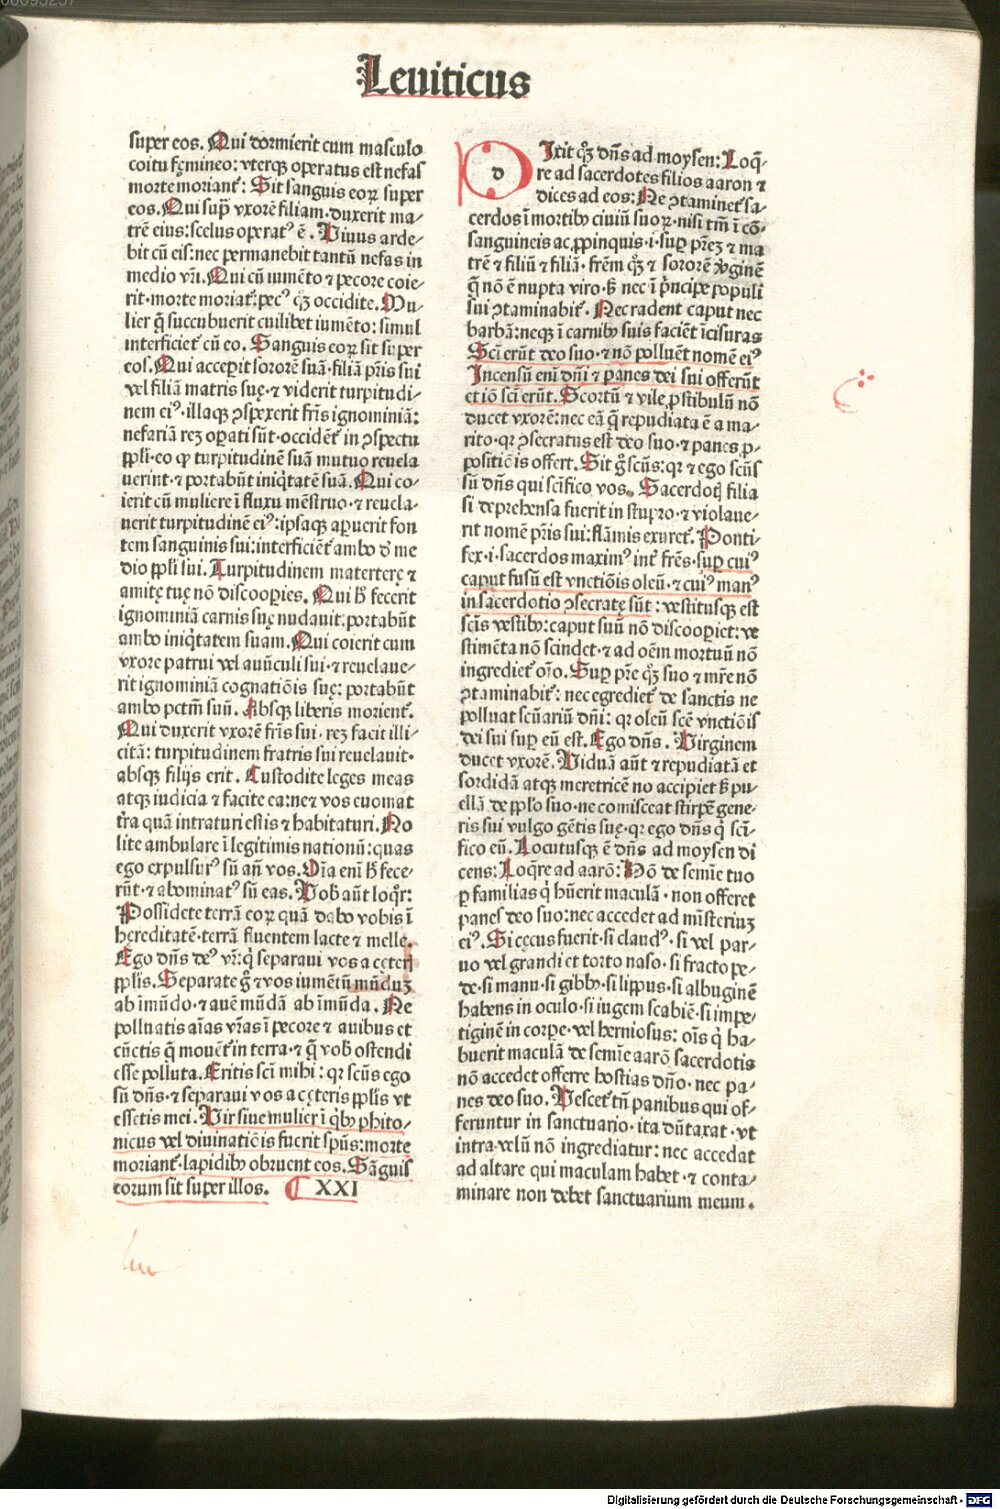 Leuiticus
super eos. Qui dormierit cum masculo
coitu fęmineo: vterqꝫ operatus est nefas
morte moriant᷑: Sit sanguis eoꝝ super
eos. Qui sup̄ vxorē filiam duxerit ma⸗
trē eius: scelus operatꝰ ē. Viuus arde⸗
bit cū eis: nec permanebit tantū nefas in
medio vr̄i. Qui cū iumēto ⁊ pecore coie⸗
rit·morte moriat᷑: pecꝰ qꝫ occidite. Mu⸗
lier q̄ succubuerit cuilibet iumēto: simul
interficiet᷑ cū eo. Sanguis eoꝝ sit super
eos. Qui acceperit sororē suā·filiā pr̄is sui
vel filiam matris suę·⁊ viderit turpitudi⸗
nem eiꝰ·illaqꝫ ꝯspexerit fr̄is ignominiā:
nefariā rez oꝑati sūt·occidēt᷑ in ꝯspectu
ppl̄i·eo ꝙ turpitudinē suā mutuo reuela
uerint·⁊ portabūt iniq̇tatē suā. Qui co⸗
ierit cū muliere ī fluxu mēstruo·⁊ reuela⸗
uerit turpitudinē eiꝰ: ipsaqꝫ aperuerit fon
tem sanguinis sui: interficiēt᷑ ambo d' me
dio ppl̄i sui. Turpitudinem materterę ⁊
amitę tuę nō discooperies. Qui h̄ fecerit
ignominiā carnis suę nudauit: portabūt
ambo iniq̇tatem suam. Qui coierit cum
vxore patrui vel auūculi sui·⁊ reuelaue⸗
rit ignominiā cognatiōis suę: portabūt
ambo pctm̄ suū. Absqꝫ liberis morient᷑.
Qui duxerit vxorē fr̄is sui·rez facit illi⸗
citā: turpitudinem fratris sui reuelauit·
absqꝫ filijs erit. Custodite leges meas
atqꝫ iudicia ⁊ facite ea: ne ⁊ vos euomat
tr̄a quā intraturi estis ⁊ habitaturi. No
lite ambulare ī legitimis nationū: quas
ego expulsurꝰ sū an̄ vos. Oīa eni h̄ fece⸗
rūt·⁊ abominatꝰ sū eas. Vob̄ aūt loq̄r:
Possidete terrā eoꝝ quā dabo vobis ī
hereditatē·terrā fluentem lacte ⁊ melle.
Ego dn̄s deꝰ vr̄: q̇ separaui vos a ceteꝭ
ppl̄is. Separate g̊ ⁊ vos iumētū mūduꝫ
ab īmūdo·⁊ auē mūdā ab īmūda. Ne
polluatis aīas vr̄as ī pecore ⁊ auibus et
cūctis q̄ mouēt᷑ in terra·⁊ q̄ vob̄ ostendi
esse polluta. Eritis scī mihi: qꝛ scūs ego
sū dn̄s·⁊ separaui vos a ceteris ppl̄is vt
essetis mei. Vir siue mulier ī q̇bꝫ phito⸗
nicus vel diuinatiōis fuerit spūs: morte
moriant᷑·lapidibꝫ obruent eos. Sāguis
eorum sit super illos. ¶ XXI
d Ixit qꝫ dn̄s ad moysen: Loq̄⸗
re ad sacerdotes filios aaron ⁊
dices ad eos: Ne ꝯtaminet᷑ sa⸗
cerdos ī mortibꝫ ciuiū suoꝝ·nisi tm̄ ī cō⸗
sanguineis ac ꝓpinquis·i·sup̄ pr̄ez ⁊ ma
trē ⁊ filiū ⁊ filiā·fr̄em qꝫ ⁊ sororē v̓ginē
q̄ nō ē nupta viro·s̄ nec ī prı̄cipe populi
sui ꝯtaminabit᷑. Nec radent caput nec
barbā: neqꝫ ī carnibꝫ suis faciēt īcisuras
Scī erūt deo suo·⁊ nō polluēt nomē eiꝰ
Incensū eni dn̄i ⁊ panes dei sui offerūt
et iō scī erūt. Scortū ⁊ vile ꝓstibulū nō
ducet vxorē: nec eā q̄ repudiata ē a ma⸗
rito·qꝛ ꝯsecratus est deo suo·⁊ panes ꝓ⸗
positiōis offert. Sit g̊ scūs: qꝛ ⁊ ego scūs
sū dn̄s qui scīfico vos. Sacerdoꝭ filia
si deprehensa fuerit in stupro·⁊ violaue⸗
rit nomē pr̄is sui: flāmis exuret᷑. Ponti⸗
fex·i·sacerdos maximꝰ int̓ fr̄es·sup̄ cuiꝰ
caput fusū est vnctiōis oleū·⁊ cuiꝰ manꝰ
in sacerdotio ꝯsecratę sūt: vestitusqꝫ est
scīs vestibꝫ: caput suū nō discooperiet: ve
stimēta nō scindet·⁊ ad oēm mortuū nō
ingrediet᷑ oīo. Sup̄ pr̄e qꝫ suo ⁊ mr̄e nō
ꝯtaminabit᷑: nec egrediet᷑ de sanctis ne
polluat scūariū dn̄i: qꝛ oleū scē vnctiōis
dei sui sup̄ eū est. Ego dn̄s. Virginem
ducet vxorē. Viduā aūt ⁊ repudiatā et
sordidā atqꝫ meretricē no accipiet s̄ pu⸗
ellā de ppl̄o suo·ne comisceat stirpē gene⸗
ris sui vulgo gētis suę·qꝛ ego dn̄s q̇ scī⸗
fico eū. Locutusqꝫ ē dn̄s ad moysen di
cens: Loq̄re ad aarō: Hō de semīe tuo
ꝑ familias q̇ hūerit maculā·non offeret
panes deo suo: nec accedet ad mīsteriuꝫ
eiꝰ. Si cęcus fuerit·si claudꝰ·si vel par⸗
uo vel grandi et torto naso·si fracto pe⸗
de·si manu·si gibbꝰ·si lippus·si albuginē
habens in oculo·si iugem scabiē·si impe⸗
tiginē in corpe·vel herniosus: oīs q̇ ha⸗
buerit maculā de semīe aarō sacerdotis
nō accedet offerre hostias dn̄o·nec pa⸗
nes deo suo. Vescet᷑ tn̄ panibus qui of⸗
feruntur in sanctuario·ita dūtaxat·vt
intra velū nō ingrediatur: nec accedat
ad altare qui maculam habet·⁊ conta⸗
minare non debet sanctuarium meum.
Digitalisierung gefördert durch die Deutsche Forschungsgemeinschaft - DFG